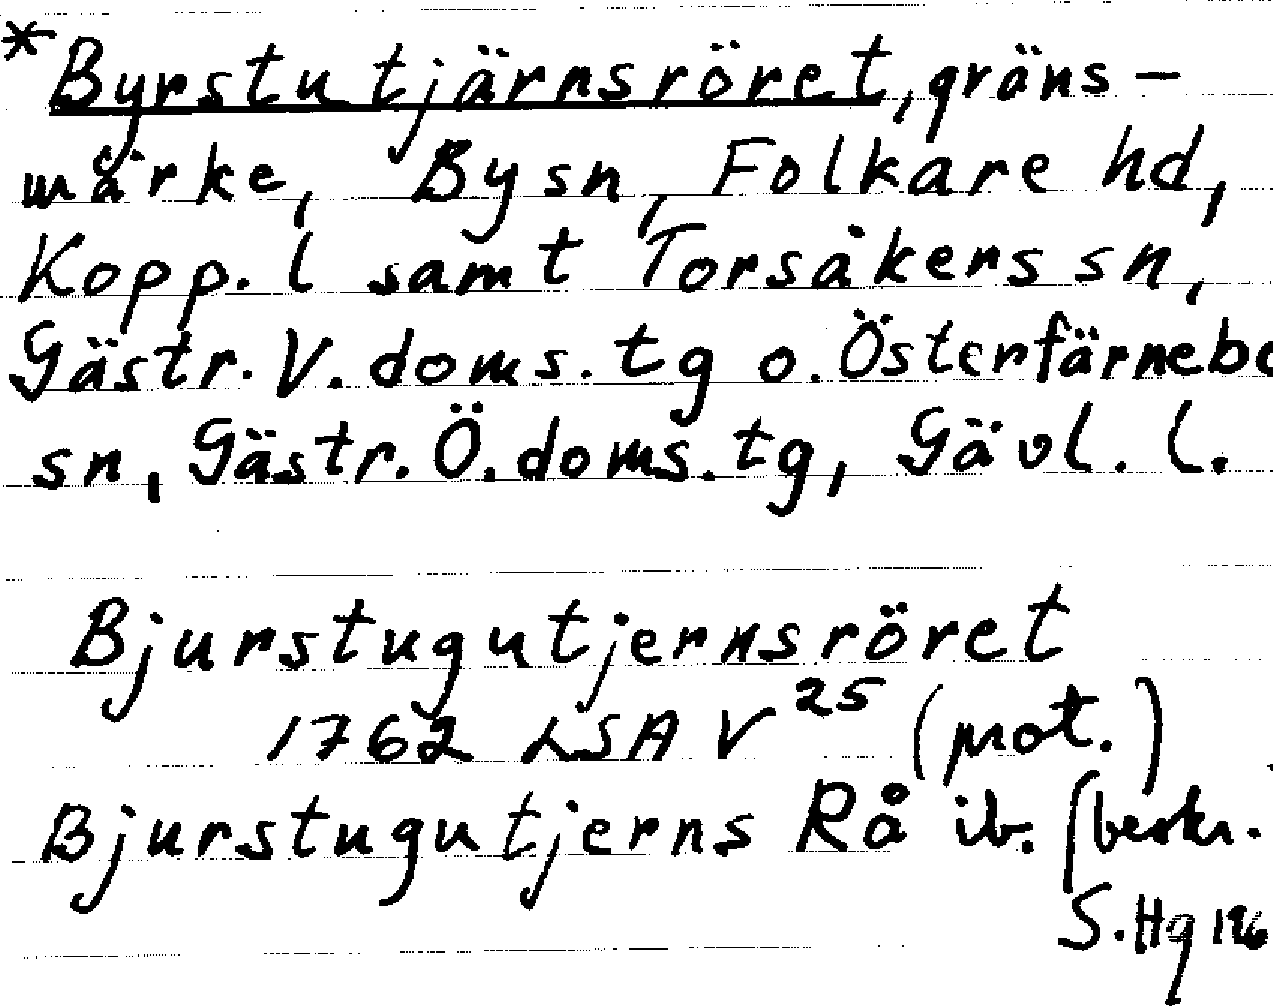 *Byrstutjärnsröret, gräns-
märke, By sn, Folkare hd,
Kopp. l samt Torsåkers sn,
Gästr. V. doms. tg o. Österfärnebo
sn, Gästr. Ö. doms. tg, Gävl. l.
Bjurstugutjernsröret
1762 LSA V 25 (prot.)
Bjurstugutjerns Rå ib. (beskr.
S. Hg